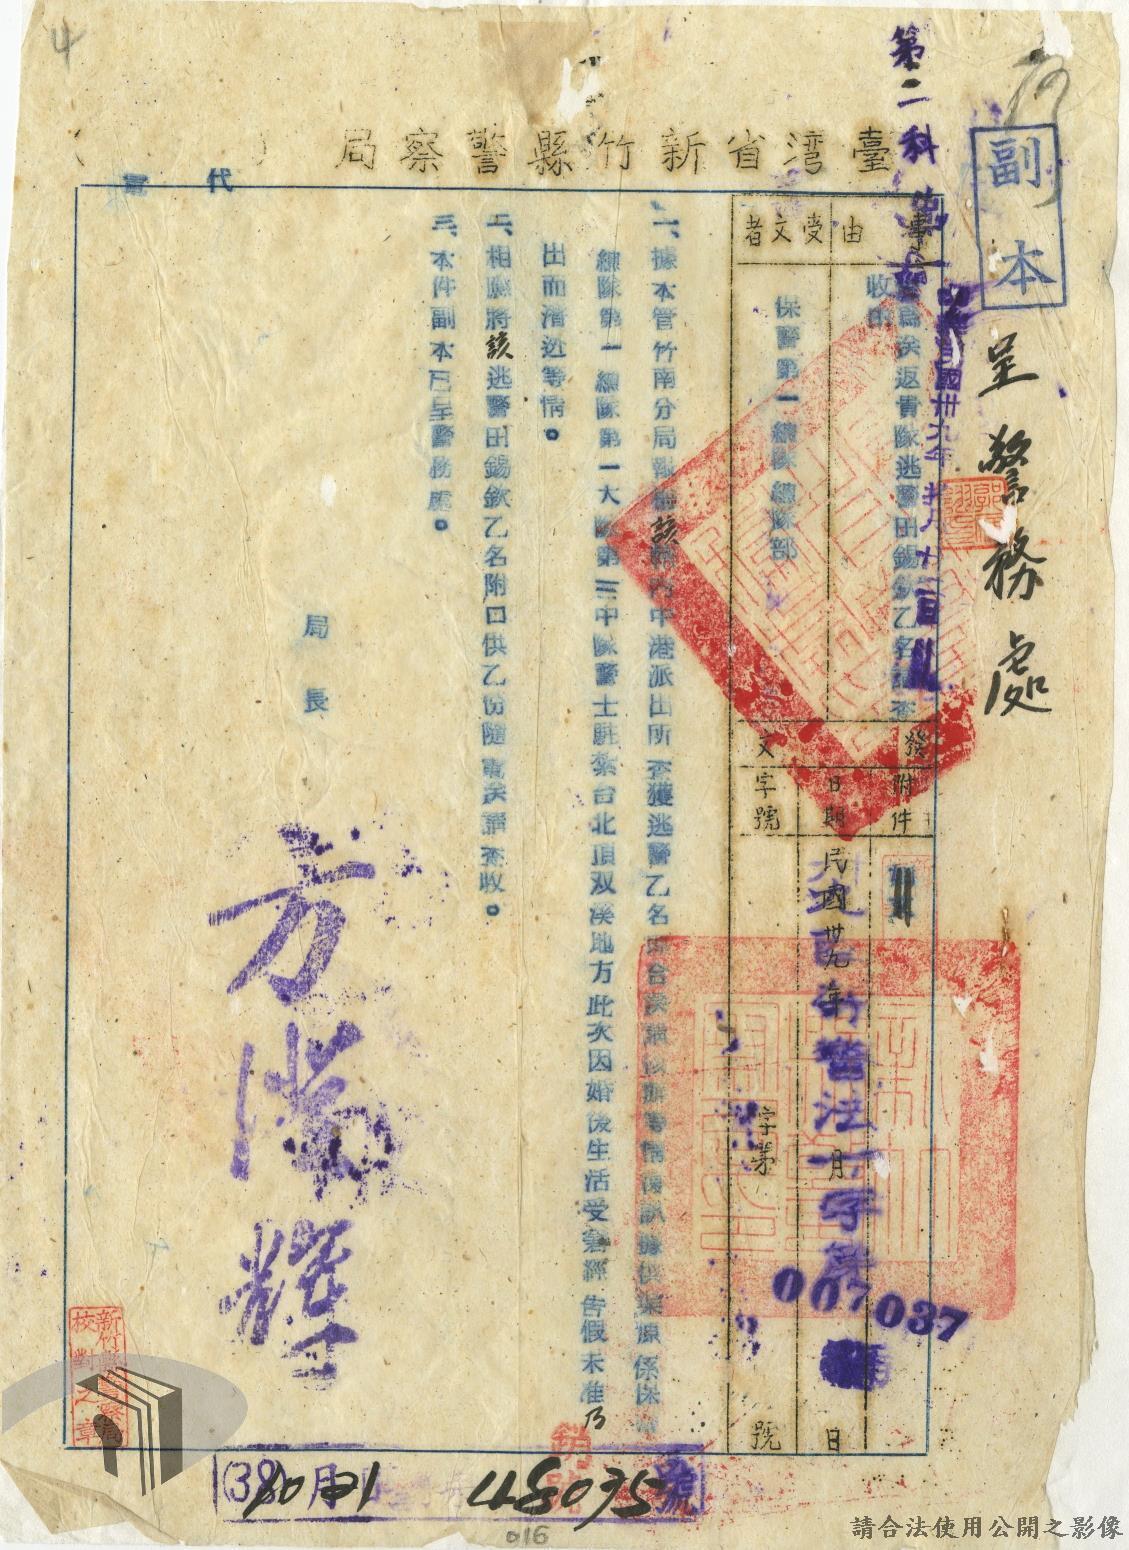 副本
呈警務處
第二科
臺灣省新竹縣警察局
代電
事由
為送返貴隊逃警田錫欽乙名請查
收由
受文者
保警第一總隊總隊部
發文
附件
日期
民國卅九年 月 日
字號
字第 號
007037
一、據本管竹南分局報稱該轄內中港派出所查獲逃警乙名
總隊第一總隊第一大隊第三中隊警士駐紮台北頂双溪地方此次因婚後生活受窘經告假未准乃
出而潛逃等情。
二、相應將該逃警田錫欽乙名附口供乙份隨電送請查收。
三、本件副本已呈警務處。
局長
方滿輝
新竹縣警察局
校對之章
48035號
016
請合法使用公開之影像